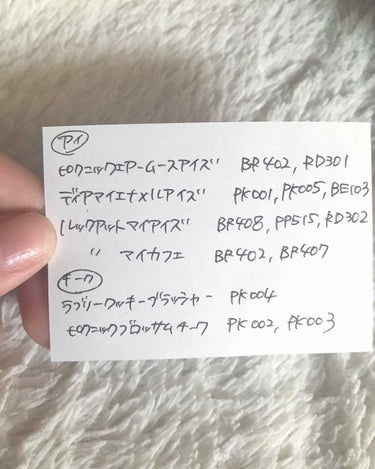 アイ
ピクニックエアームースアイズ BR402, RD301
ディアマイエナメルアイズ PK001, PK005, BE103
ルックアットマイアイズ BR408, PP515, RD302
〃 マイカフェ BR402, BR407
チーク
ラブリークッキーブラッシャー PK004
ピクニックブロッサムチーク PK002, PK003